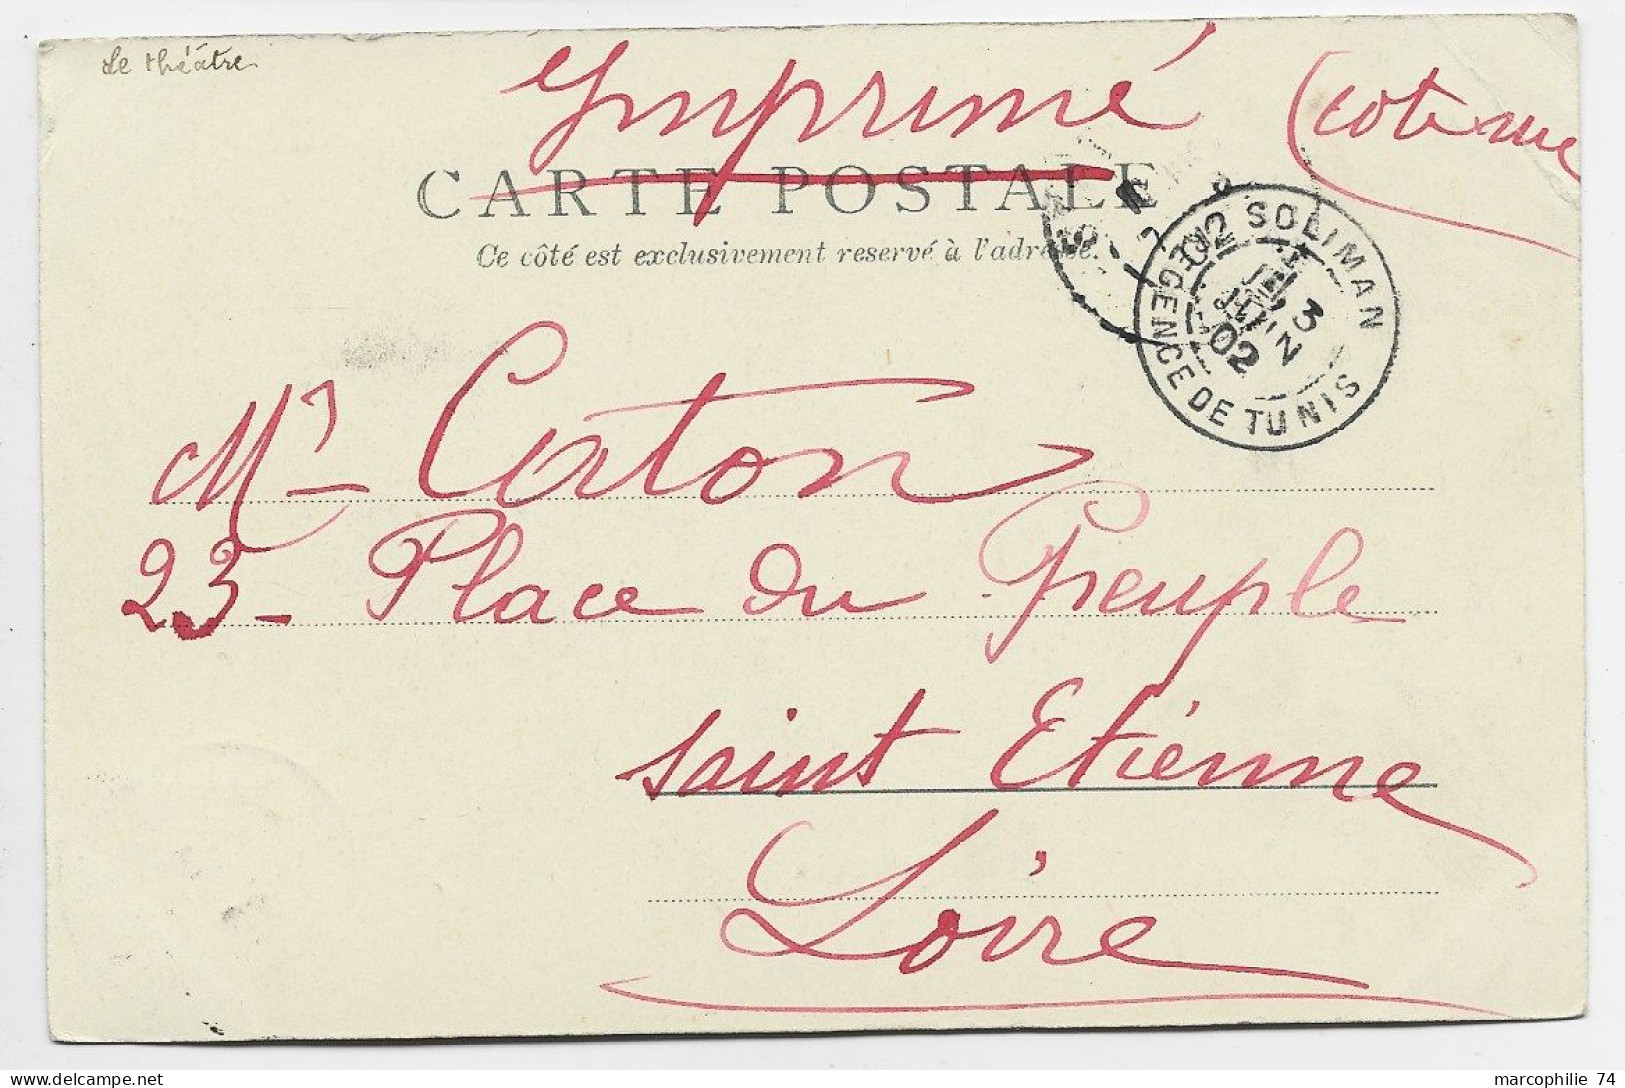 Le théâtre
Imprimé (côté vue
CARTE POSTALE
Ce côté est exclusivement reservé à l'adresse.
SOLIMAN
3
JUIN
02
RÉGENCE DE TUNIS
Mr Corton
23 - Place du Peuple
Saint Etienne
Loire
marcophilie 74